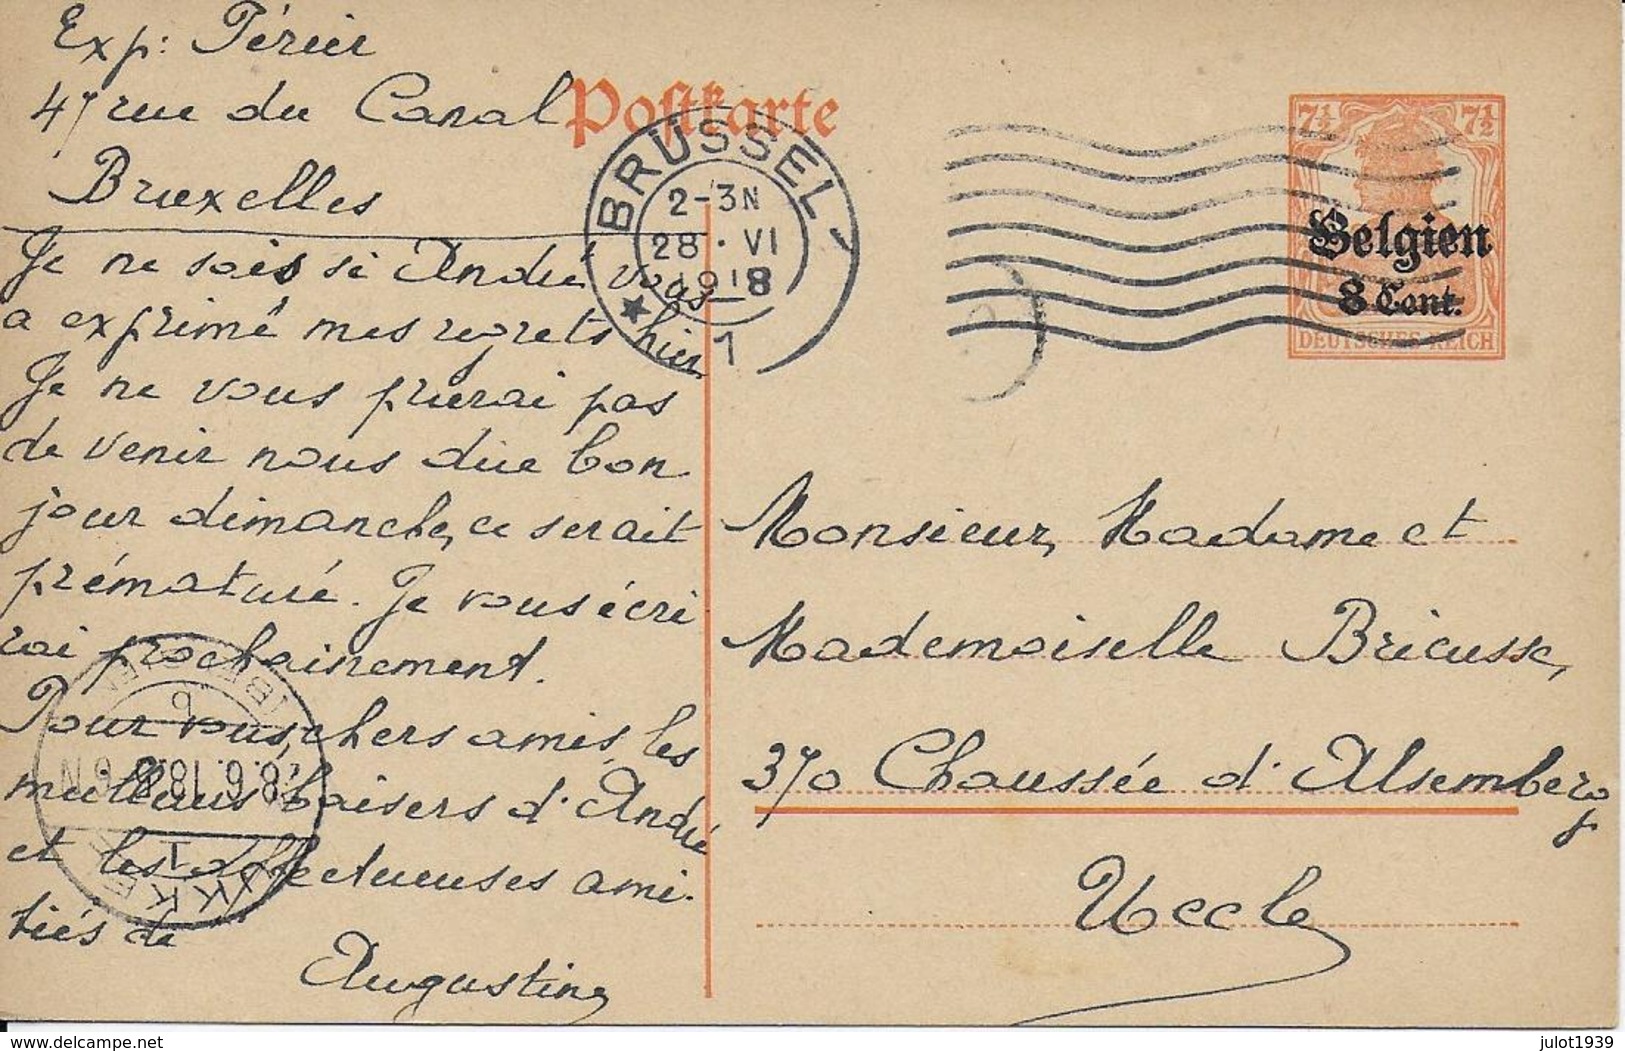 Exp: Périer
47 rue du Canal
Bruxelles
Postkarte
BRÜSSEL
2-3N
28 · VI
1918
1
7½ 7½
Belgien
8 Cent.
DEUTSCHES REICH
Je ne sais si André vous
a exprimé mes regrets hier
Je ne vous prierai pas
de venir nous dire bon
jour dimanche, ce serait
prématuré. Je vous écri
rai prochainement.
Pour vous, chers amis, les
meilleurs baisers d'André
et les affectueuses ami-
tiés de
Augustine
Monsieur, Madame et
Mademoiselle Bricusse,
370 Chaussée d'Alsemberg
Uccle
julot1939